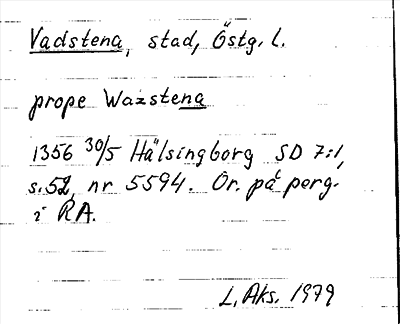 Vadstena, stad, Östg. l.
prope Wazstena
1356 30/5 Hälsingborg SD 7:1,
s. 52, nr 5594. Or. på perg.
i RA.
L. Aks. 1979